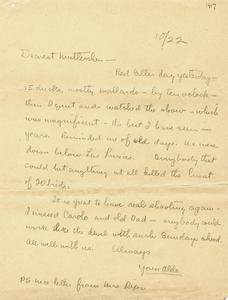 1917
10/22
Dearest Muttersken —
Red letter day yesterday —
15 ducks, mostly mallards — by ten o'clock —
then I quit and watched the show — which
was magnificent — the best I have seen —
years. Reminded me of old days. We were
down below Las Cruces. Everybody that
could hit anything at all killed the limit
of 20 birds.
It is great to have real shooting again —
I missed Carolo and old Dad — anybody could
work like the devil with such Sundays ahead.
All well with me. Always
Your Aldo
PS nice letter from Mrs